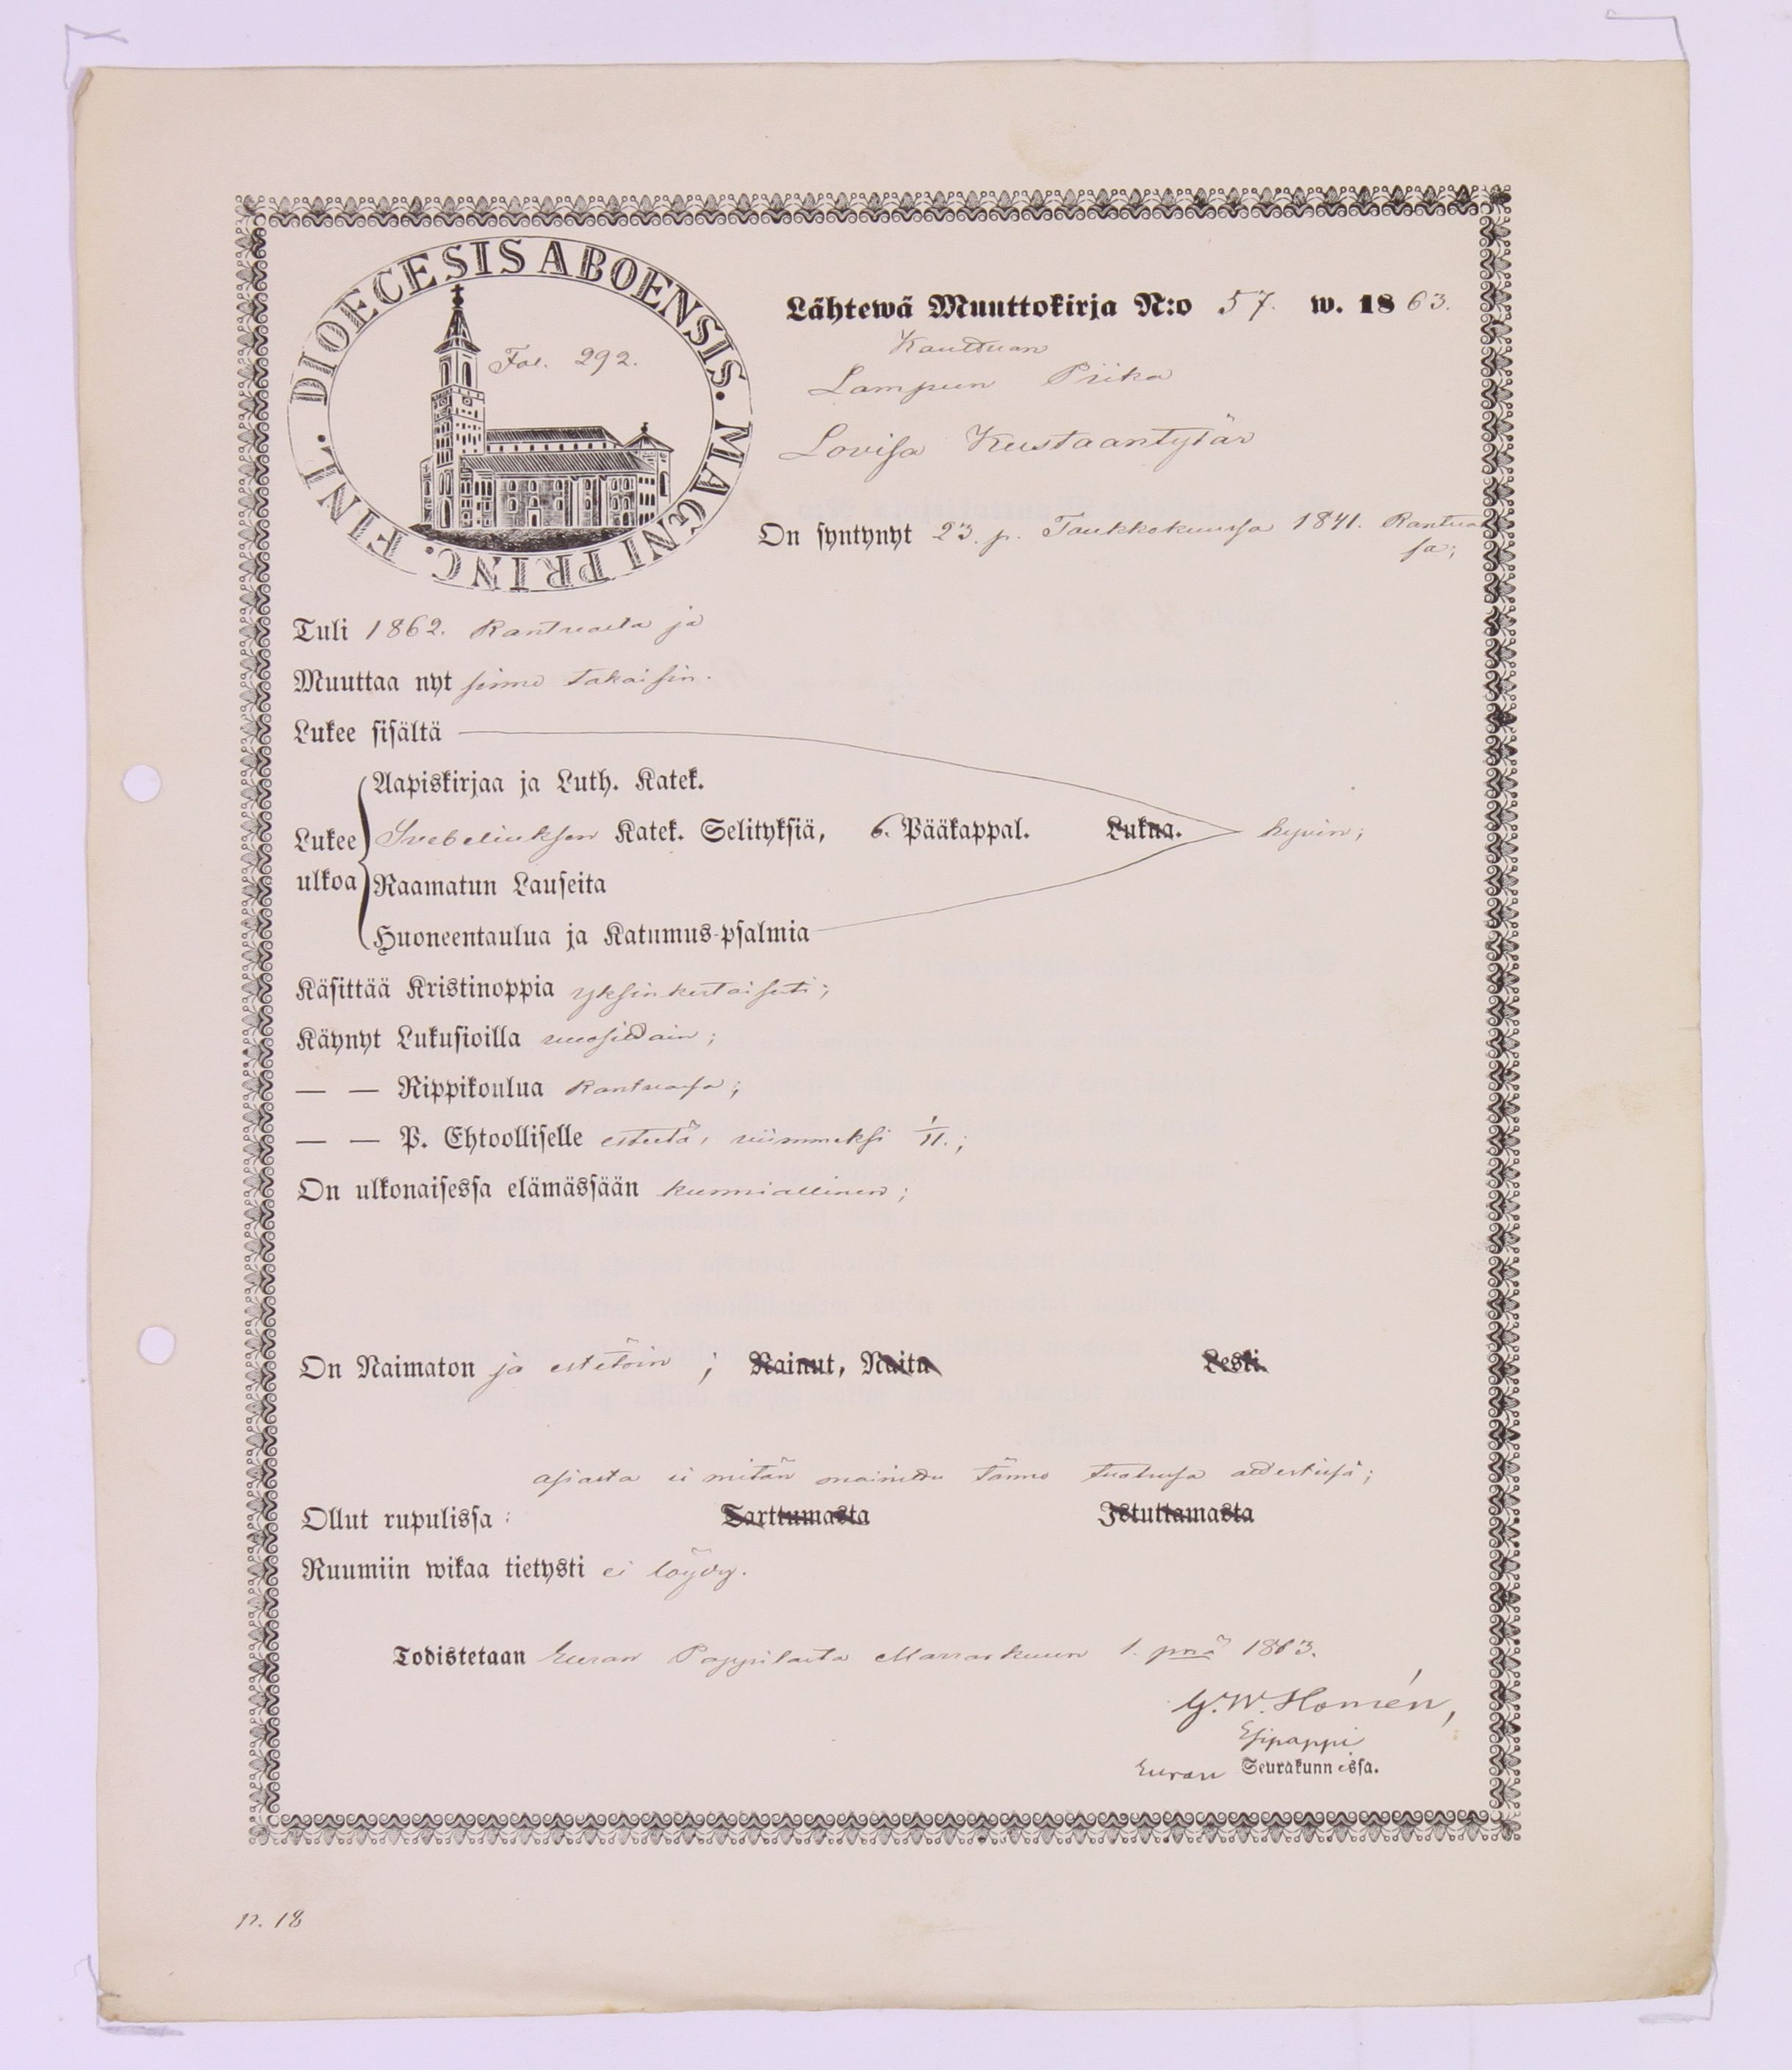 DIOECESIS ABOENSIS. MAGNI PRINC. FINL.
Fol. 292.
Lähtewä Muuttokirja N:o 57. w. 1863.
Kauttuan
Lampun Piika
Lovisa Kustaantytär
On syntynyt 23. p. Toukkokuussa 1841. Rantua
sa;
Tuli 1862. Rantuasta ja
Muuttaa nyt sinne takaisin.
Lukee sisältä
Aapiskirjaa ja Luth. Katek.
Lukee ulkoa Svebeliuksen Katek. Selityksiä, 6. Pääkappal. Lukua. hyvin;
Raamatun Lauseita
Huoneentaulua ja Katumus-psalmia
Käsittää Kristinoppia yksinkertaisesti;
Käynyt Lukusioilla vuosidain;
— — Rippikoulua Rantuasa;
— — P. Ehtoolliselle esteetä, viimmeksi 1/11.;
On ulkonaisessa elämässään kunniallinen;
On Naimaton ja estetöin; Nainut, Naitu Leski
asiasta ei mitän mainittu tänne tuotusa atestisa;
Ollut rupulissa: Tarttumasta Istuttamasta
Ruumiin wikaa tietysti ei löydy.
Todistetaan Euran Pappilasta Marraskuun 1. pnä 1863.
G. W. Homén,
Esipappi
Euran Seurakunnissa.
n. 18